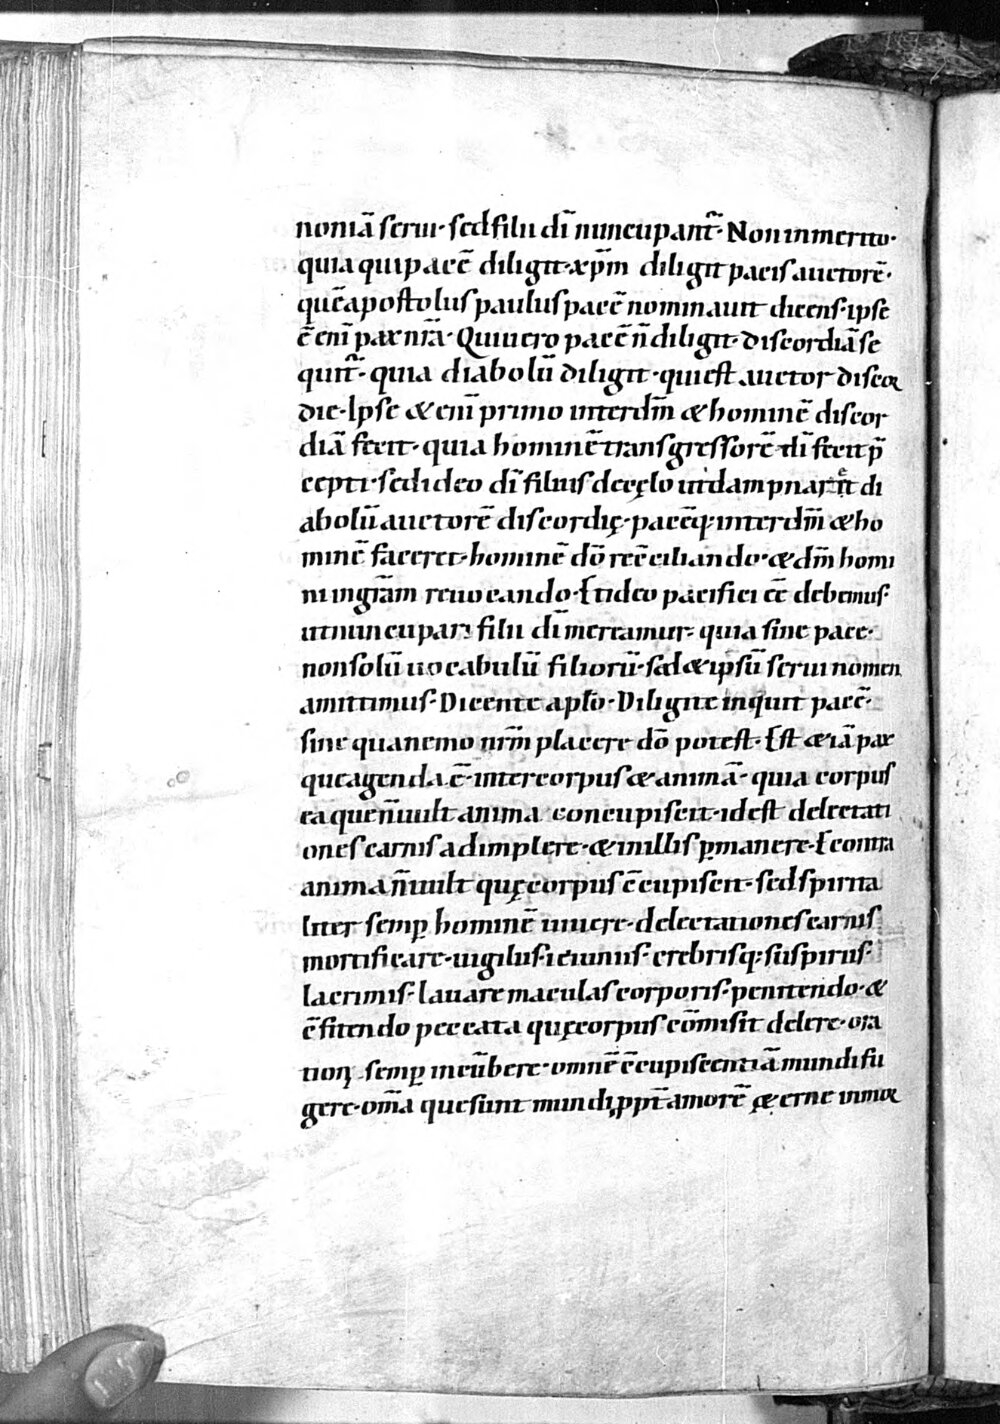 noniā serui· sed filii dī nuncupant᷑· Non inmerito·
quia qui pacē diligit· xp̄m diligit pacis auctorē·
quē apostolus paulus pacē nominauit dicens· ipse
ē eni̅ pax nr̄a· Qui uero pacē n̄ diligit· discordiā se
quit᷑· quia diabolū diligit· qui est auctor discor
die· Ipse & eni̅ primo inter dm̄ & hominē discor
diā fecit· quia hominē transgressorē dī fecit p̄
cepti· sed ideo dī filius de cęlo
abolū auctorē discordię· pacēq· inter dm̄ & ho
minē faceret· hominē dō recc̄iliando· & dm̄ homi
ni in gr̄am reuocando· Et ideo pacifici eē debemus·
ut nuncupari filii dī mereamur· quia sine pace·
non solū uocabulū filiorū· sed & ipsū serui nomen
amittimus· Dicente apl̄o· Diligite inquit pacē·
sine qua nemo nr̄m placere dō potest· Est & iā pax
que agenda ē· inter corpus & animā· quia corpus
ea que n̄ uult anima concupiscit· id est delectati
ones carnis adimplere· & in illis p̱manere· E contra
anima n̄ uult quę corpus c̄cupiscit· sed spirita
liter semp̱ hominē uiuere· delectationes carnis
mortificare· uigiliis· ieiuniis· crebrisq· suspiriis·
lacrimis· lauare maculas corporis· penitendo· &
c̄fitendo peccata quę corpus cōmisit delere· ora
tioni semp̱ incūbere· omnē c̄cupiscentiā mundi fu
gere· om̄a que sunt mundi, ppt̄ amorē ęterne inmor